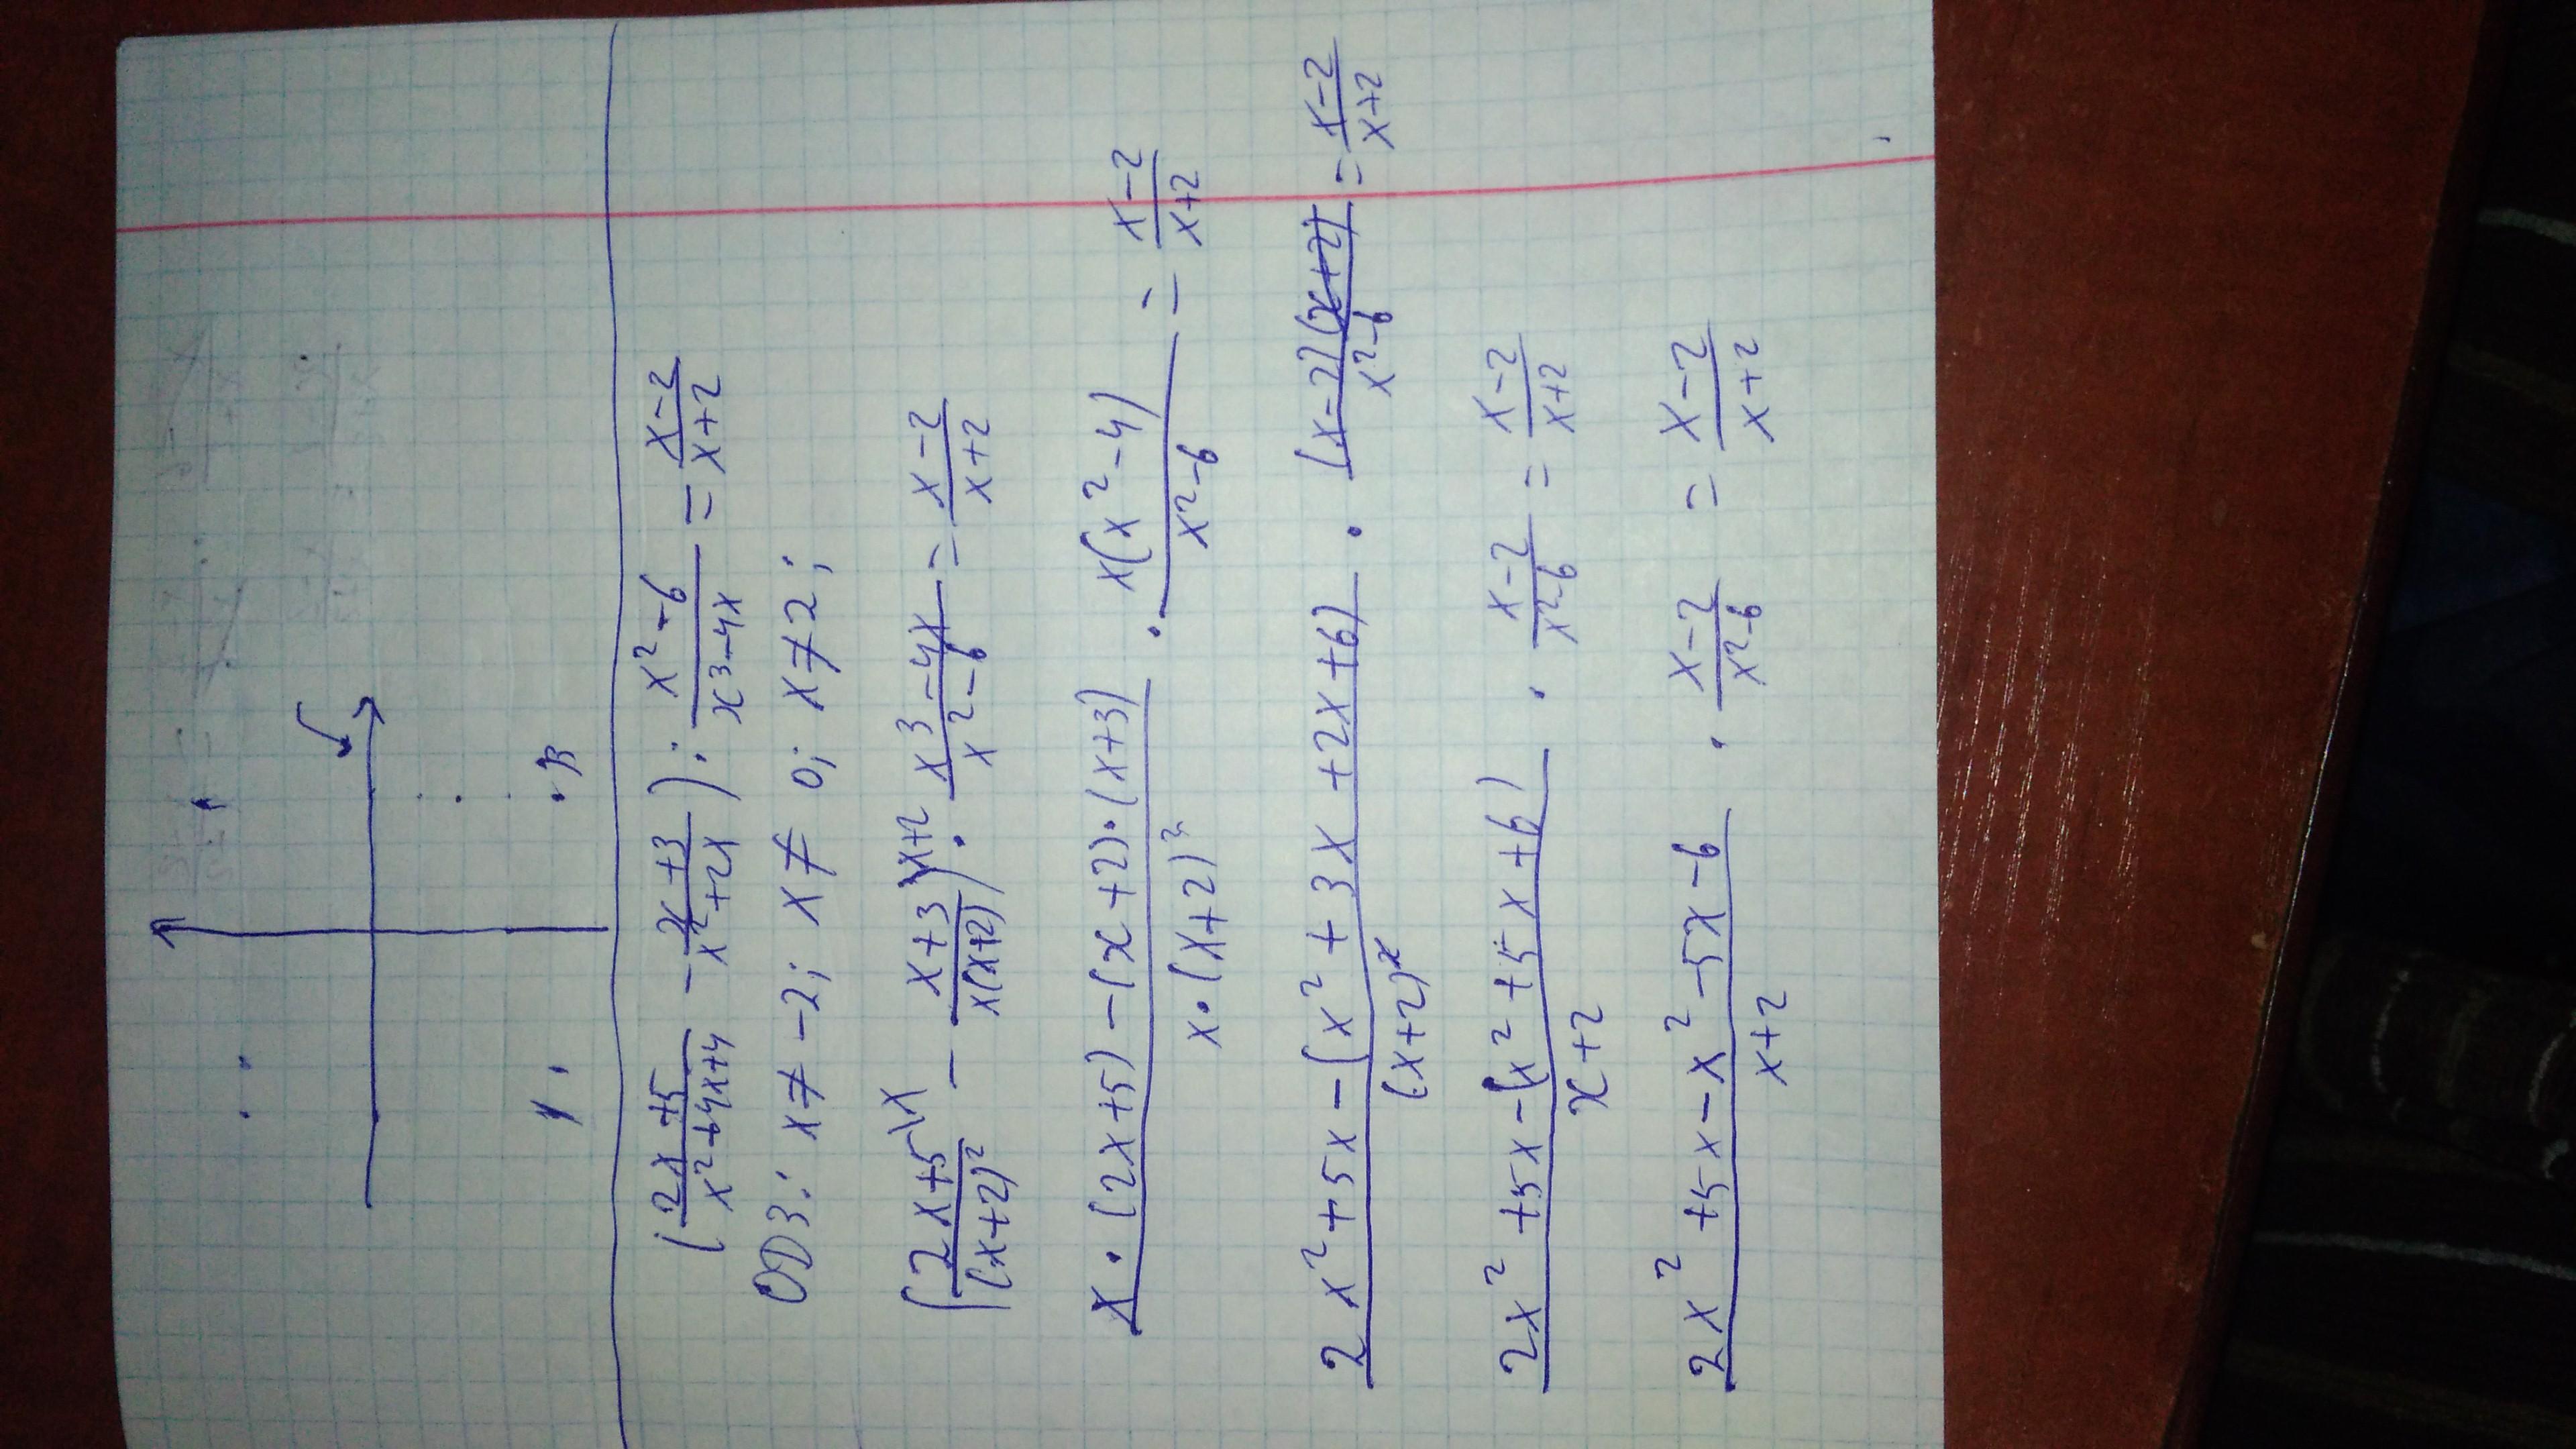 У
В
(2x+5/x²+4x+4 − x+3/x²+2x) : x²−6/x³−4x = x−2/x+2
ОДЗ: x≠−2; x≠0; x≠2;
(2x+5\x/(x+2)² − x+3\x+2/x(x+2)) · x³−4x/x²−6 = x−2/x+2
x·(2x+5)−(x+2)·(x+3)/x·(x+2)² · x(x²−4)/x²−6 = x−2/x+2
2x²+5x−(x²+3x+2x+6)/(x+2)² · (x−2)(x+2)/x²−6 = x−2/x+2
2x²+5x−(x²+5x+6)/x+2 · x−2/x²−6 = x−2/x+2
2x²+5x−x²−5x−6/x+2 · x−2/x²−6 = x−2/x+2